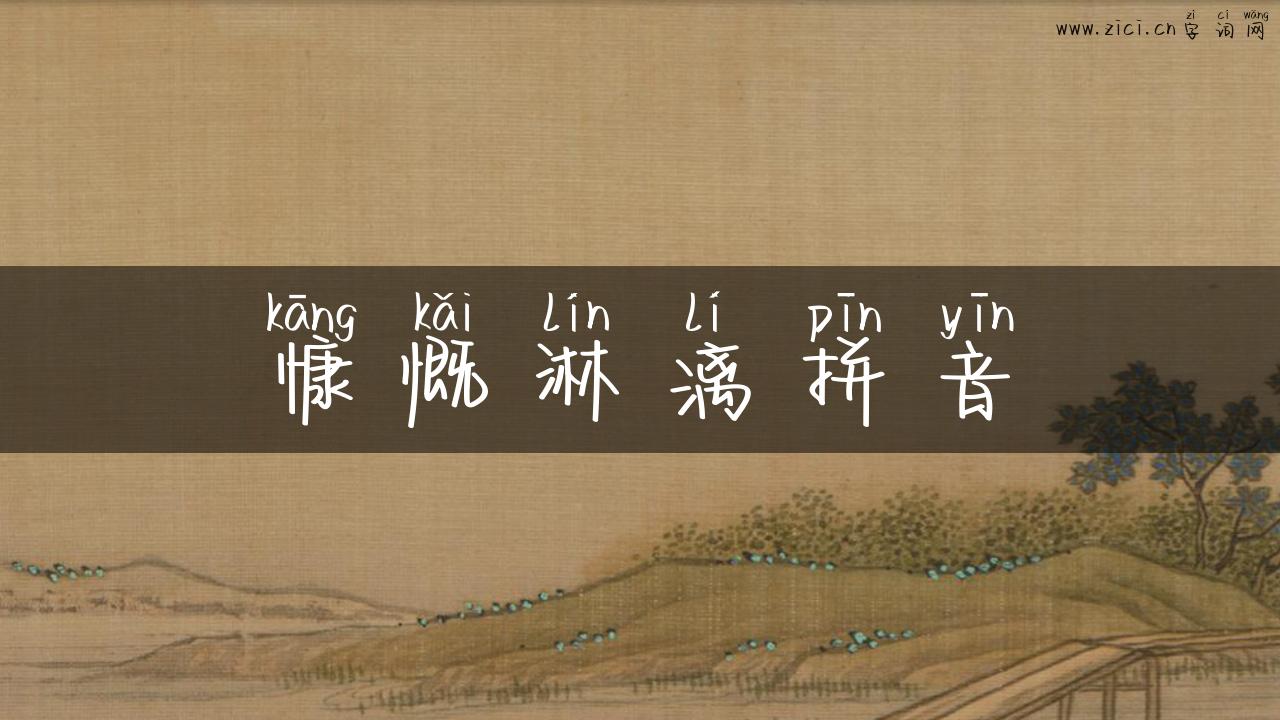 zì cí wǎng
www.zici.cn 字 词 网
kāng kǎi lín lí pīn yīn
慷 慨 淋 漓 拼 音